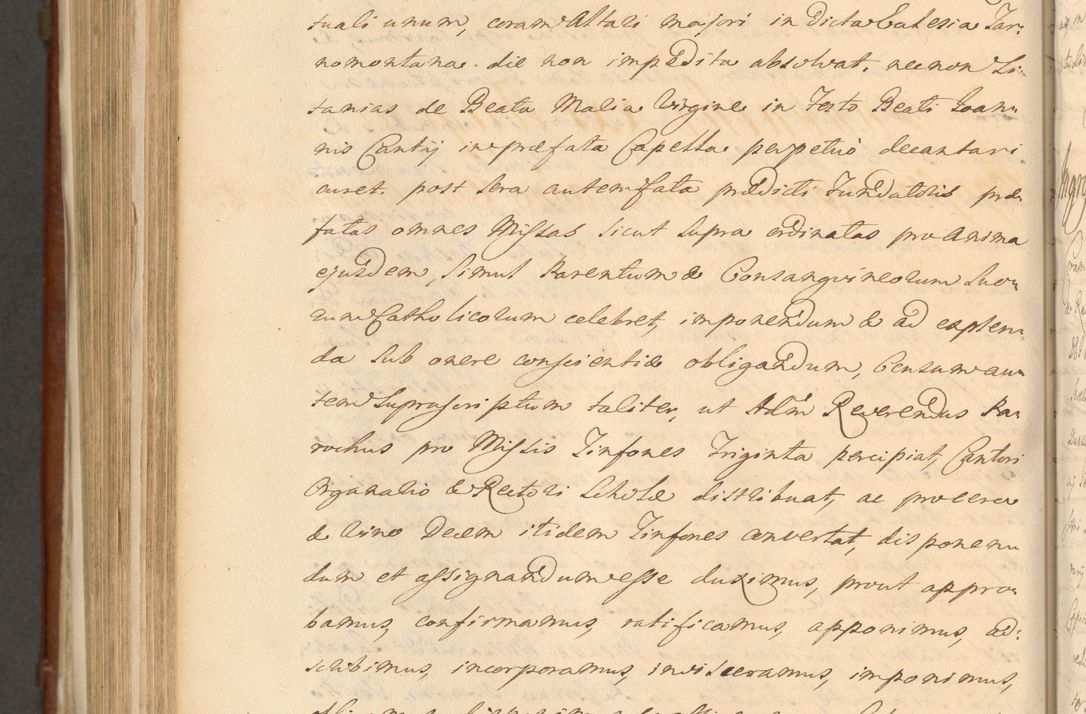 tuali unum, coram Altari majori in Dicta Ecclesia Tar:
nomontana. die non impedita absolvat. necnon Li-
tanias de Beata Maria Virgine in Festo Beati Joan-
nis Cantij in præfata Capella perpetuò decantari
curet. post sera autem fata prædicti Fundatoris præ-
fatas omnes Missas sicut supra ordinatas pro Anima
ejusdem, simul Parentum & Consangvineorum Suo-
rum Catholicorum celebret, imponendum & ad explen-
da sub onere conscientiæ obligandum, Censum au-
tem suprascriptum taliter, ut Adm Reverendus Pa-
rochus pro Missis Tinfones Triginta percipiat, Cantori
Organario & Rectori Scholæ distribuat, ac pro cera
& Vino Decem itidem Tinfones convertat, disponenn
dum et assignandum esse duximus, prout appro-
bamus, confirmamus, ratificamus, apponimus, ad:
scribimus, incorporamus, invisceramus, imponimus,